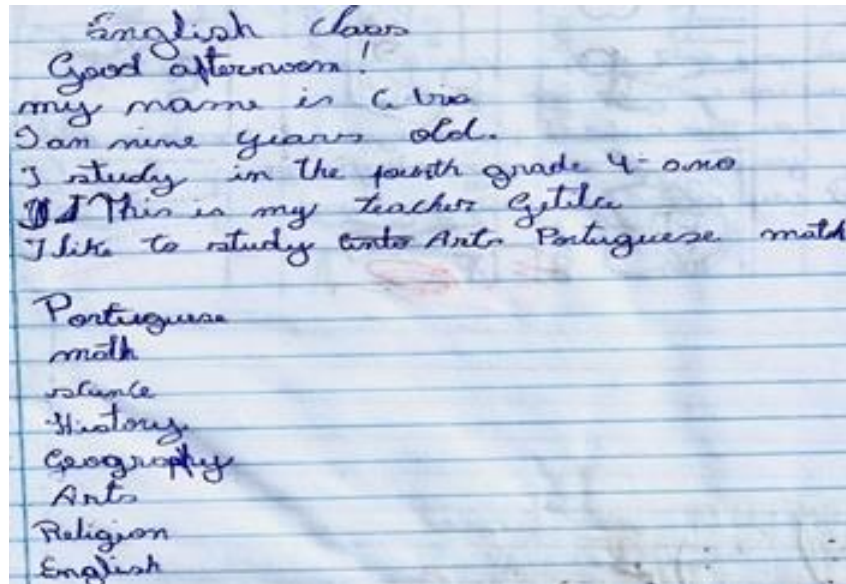 English Class
Good afternoon!
my name is
I am nine years old.
I study in the fourth grade 4- ano
This is my teacher
I like to study Arts Portuguese math

Portuguese
math
science
History
Geography
Arts
Religion
English